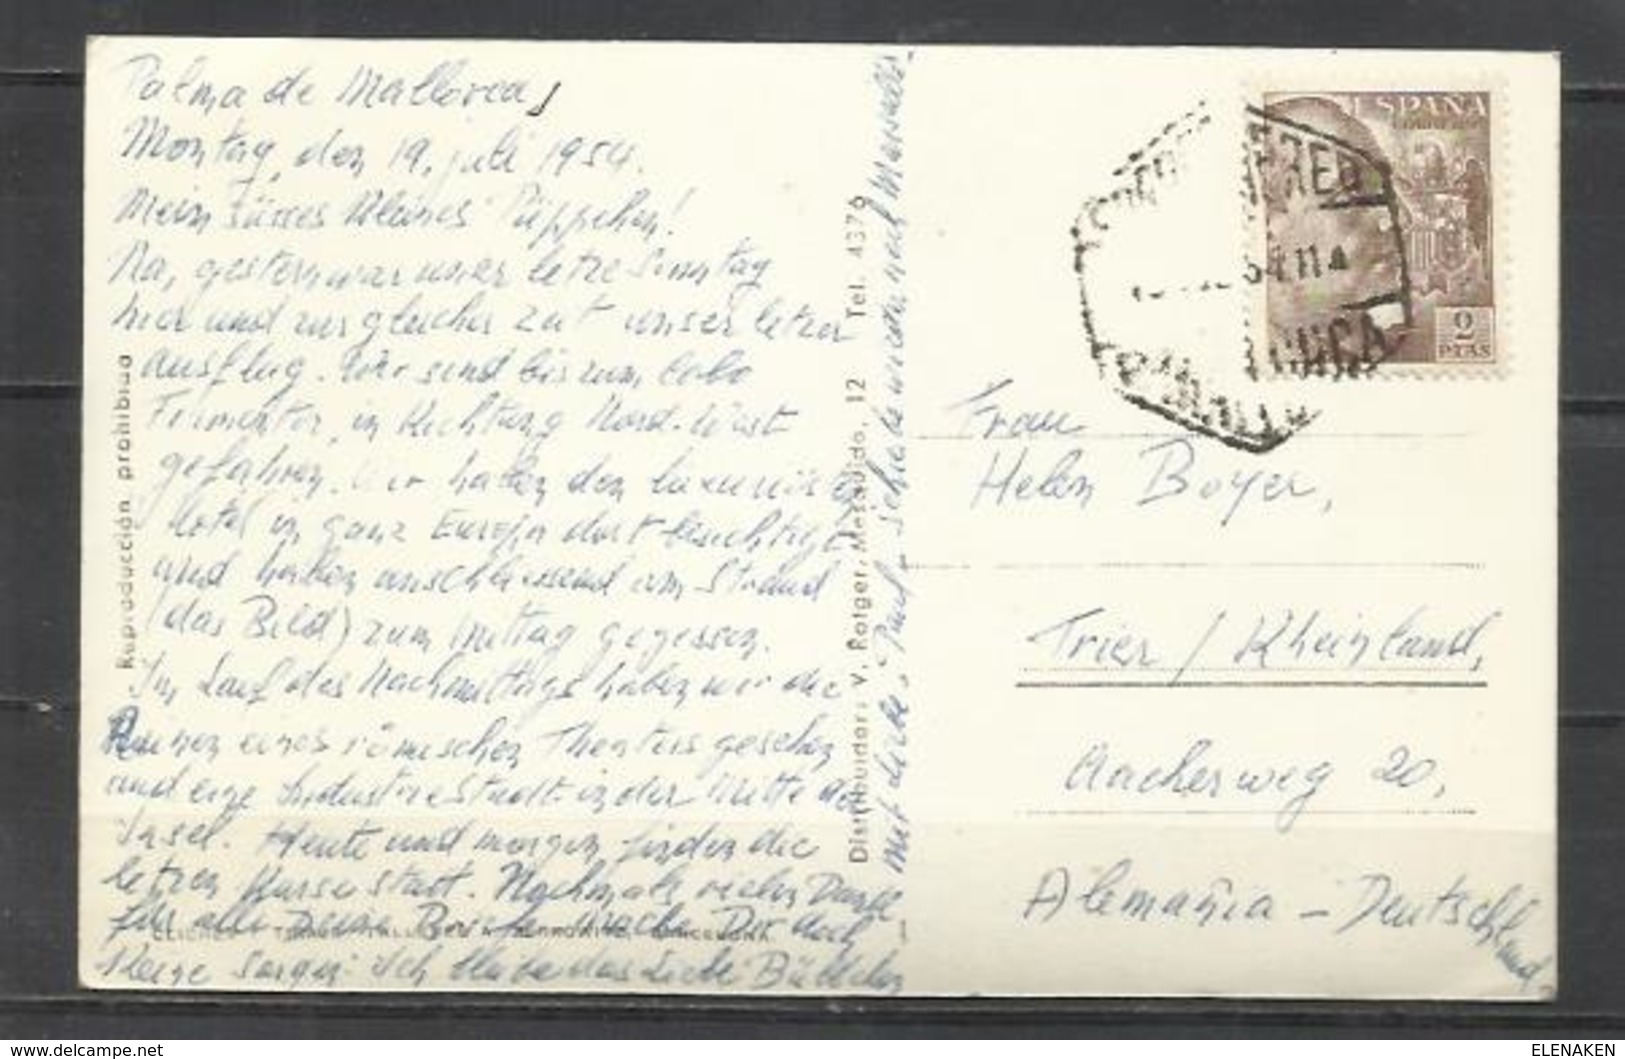 Palma de Mallorca,
Montag, den 19. juli 1954.
Mein süsses kleines Püppchen!
Na, gestern war unser letzter Sonntag
hier und zur gleicher Zeit unser letzter
ausflug. Wir sind bis zum Cabo
Formentor, in Richtung Nord-West
gefahren. Wir haben den luxuriösten
Hotel in ganz Europa dort besichtigt
und haben anschliessend am Strand
(das Bild) zum Mittag gegessen.
Im Lauf des Nachmittags haben wir die
Ruinen eines römischen Theaters gesehen
und eine Industriestadt in der Mitte der
Insel. Heute und morgen finden die
letzten Kurse statt. Nochmals vielen Dank
für alle Deine Briefe mache Dir doch
Keine Sorgen. Ich bleibe das Liebe
mit liebe, Paul. Schreibe wieder nach Marseille.
Reproducción prohibida
Distribuidor: V. Rotger, Mesquida, 12 Tel. 4376
ESPAÑA
CORREOS
2
PTAS
CORREO AEREO
54.11
Frau
Helen Boyer,
Trier / Rheinland,
Aacherweg 20,
Alemañia - Deutschland.
ELENAKEN